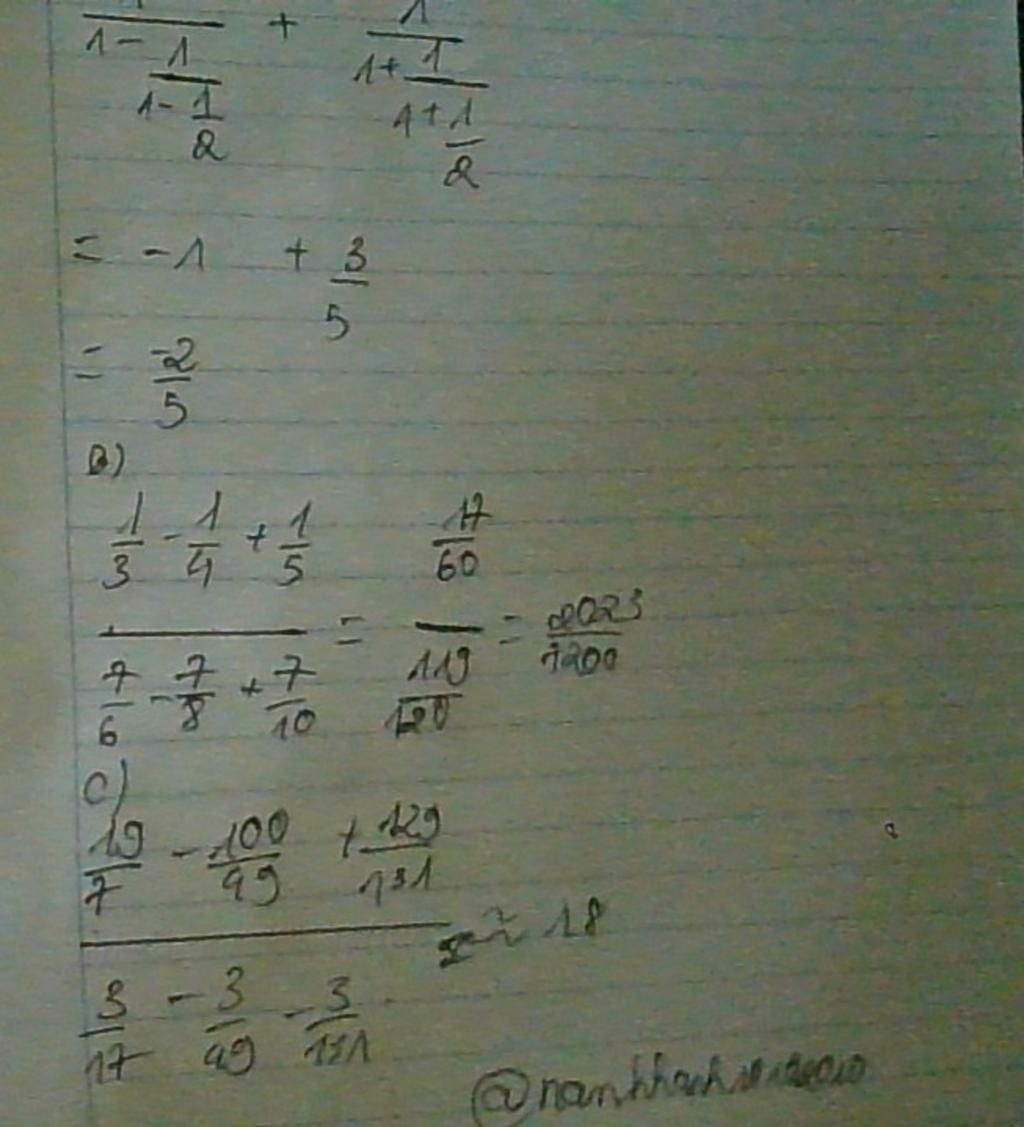 1/(1-1/(1-1/2)) + 1/(1+1/(1+1/2))
= -1 + 3/5
= -2/5
B)
(1/3 - 1/4 + 1/5)/(7/6 - 7/8 + 7/10) = (17/60)/(119/120) = 2023/7200
C)
(19/7 - 100/49 + 129/131)/(3/17 - 3/49 - 3/131) ≈ 18